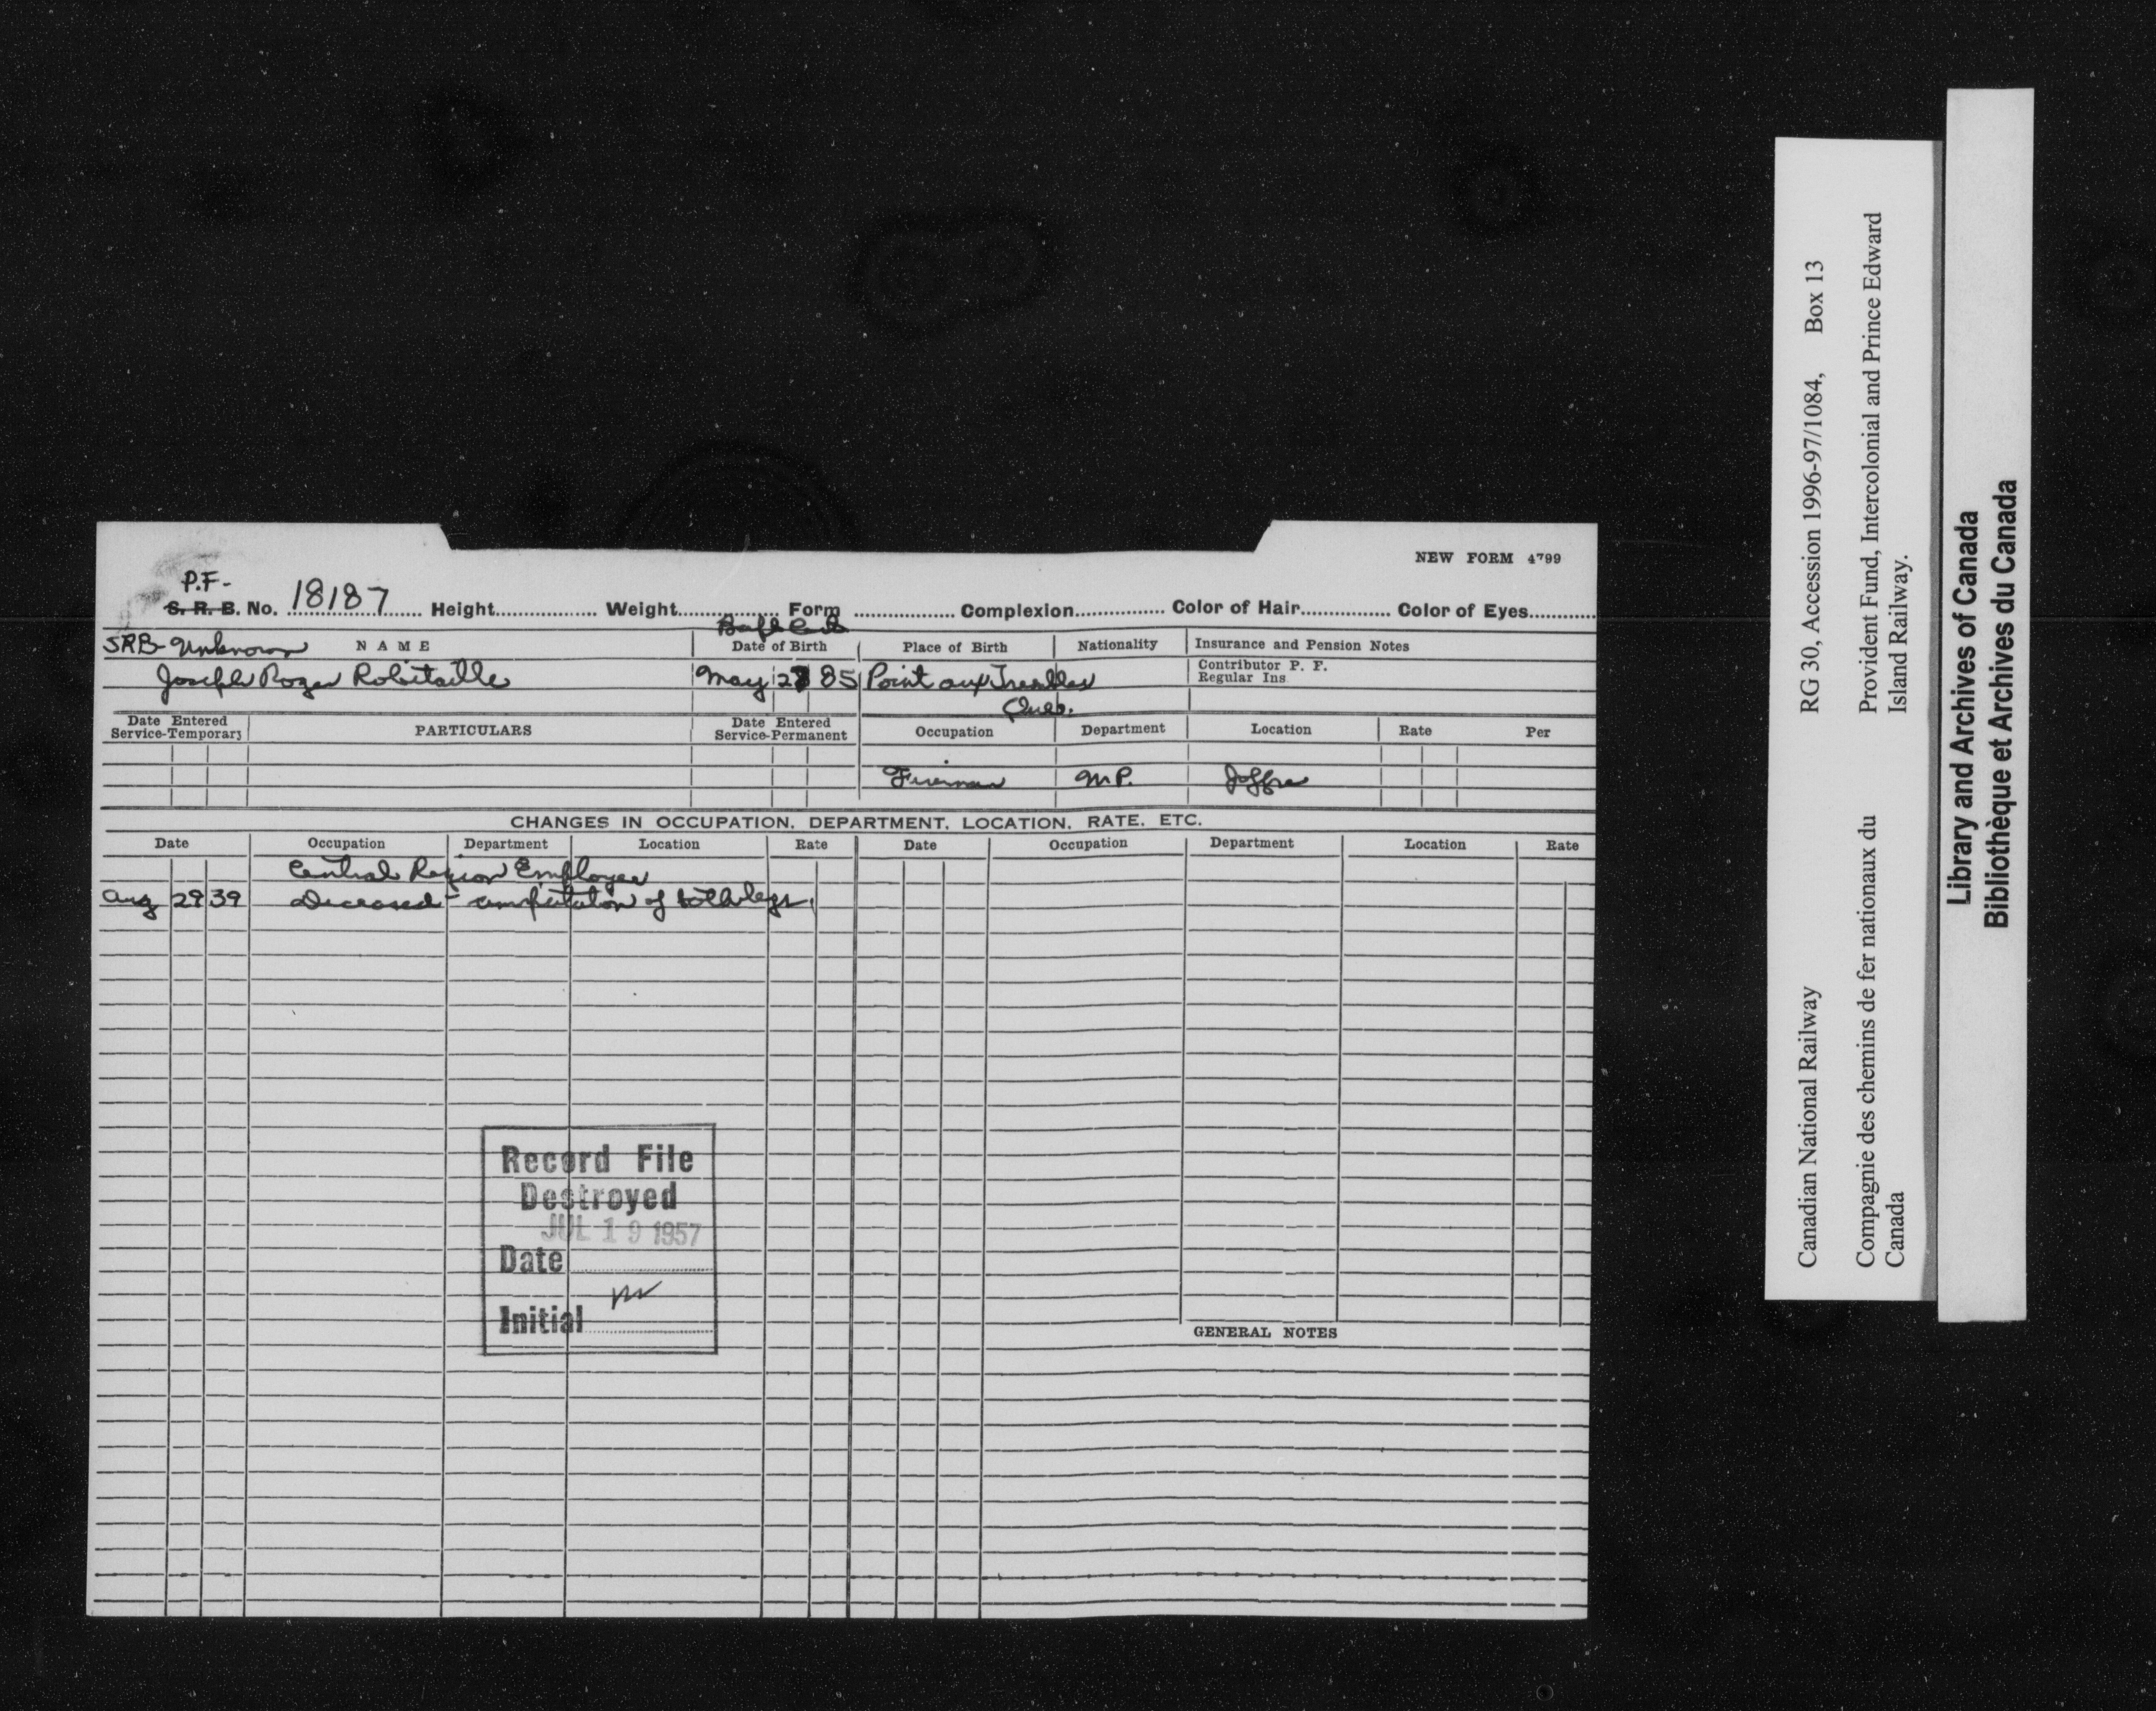 NEW FORM 4799
P.F-
S. R. B. No. 18187 Height Weight Form Complexion Color of Hair Color of Eyes
SRB-Unknown NAME Date of Birth Place of Birth Nationality Insurance and Pension Notes
Joseph Roger Robitaille May 85 Point aux Trembles Contributor P. F.
Regular Ins
Queb.
Date Entered Service-Temporary PARTICULARS Date Entered Service-Permanent Occupation Department Location Rate Per
Fireman M.P. Joffre
CHANGES IN OCCUPATION, DEPARTMENT, LOCATION, RATE, ETC.
Date Occupation Department Location Rate Date Occupation Department Location Rate
Central Region Employee
Aug 29 39 Deceased - amputation of both legs.
Record File
Destroyed
JUL 19 1957
Date
Initial
GENERAL NOTES
Canadian National Railway RG 30, Accession 1996-97/1084, Box 13
Compagnie des chemins de fer nationaux du Canada
Provident Fund, Intercolonial and Prince Edward Island Railway.
Library and Archives of Canada
Bibliothèque et Archives du Canada